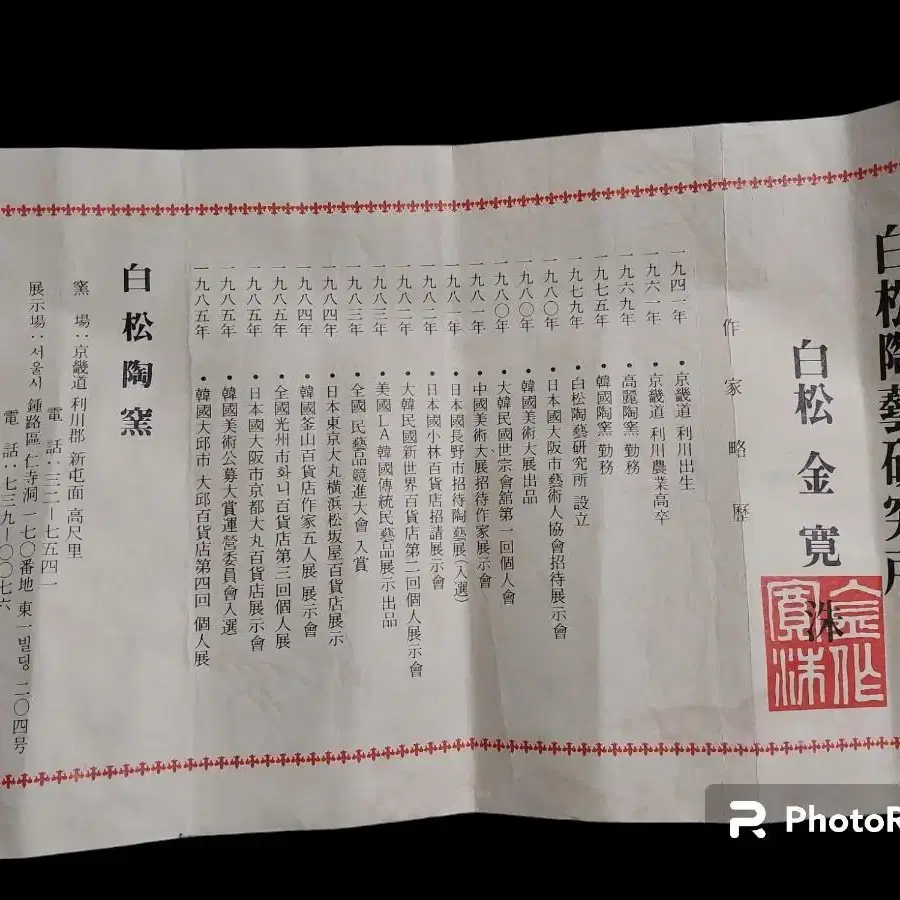 白松陶藝研究所
白松 金寛洙
金寛洙作
作家略歷
一九四一年 • 京畿道 利川出生
一九六一年 • 京畿道 利川農業高卒
一九六九年 • 高麗陶窯 勤務
一九七五年 • 韓國陶窯 勤務
一九七九年 • 白松陶藝研究所 設立
一九八〇年 • 日本國大阪市藝術人協會招待展示會
一九八〇年 • 韓國美術大展出品
一九八〇年 • 大韓民國世宗會舘第一回個人會
一九八一年 • 中國美術大展招待作家展示會
一九八一年 • 日本國長野市招待陶藝展(入選)
一九八二年 • 日本國小林百貨店招請展示會
一九八二年 • 大韓民國新世界百貨店第二回個人展示會
一九八三年 • 美國LA 韓國傳統民藝品展示出品
一九八三年 • 全國 民藝品競進大會 入賞
一九八四年 • 日本東京大丸橫浜松坂屋百貨店展示
一九八四年 • 韓國釜山百貨店作家五人展 展示會
一九八五年 • 全國光州市화니百貨店第三回個人展
一九八五年 • 日本國大阪市京都大丸百貨店展示會
一九八五年 • 韓國美術公募大賞運營委員會入選
一九八五年 • 韓國大邱市 大邱百貨店第四回 個人展
白松陶窯
窯 場:京畿道 利川郡 新屯面 高尺里
電 話:三二—七五四一
展示場:서울시 鍾路區 仁寺洞 一七〇番地 東一빌딩 二〇四号
電 話:七三九—〇〇七六
PhotoR